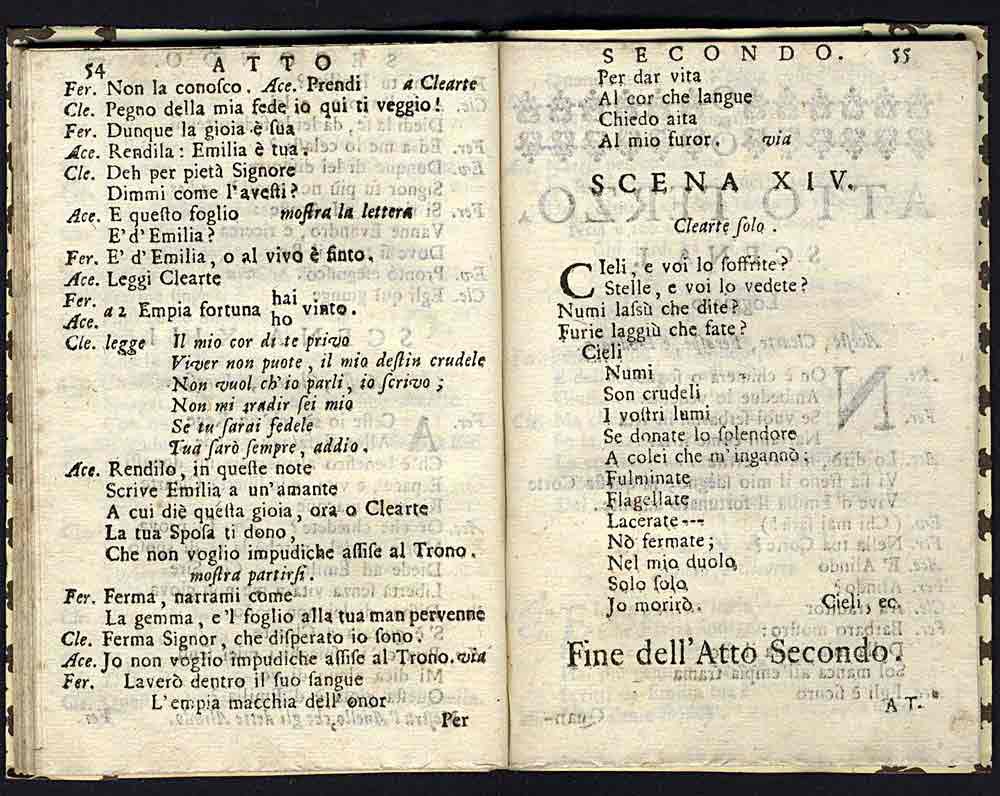 54 ATTO
Fer. Non la conoſco. Ace. Prendi a Clearte
Cle. Pegno della mia fede io qui ti veggio!
Fer. Dunque la gioia è ſua
Ace. Rendila: Emilia è tua.
Cle. Deh per pietà Signore
Dimmi come l'aveſti?
Ace. E queſto foglio moſtra la lettera
E' d' Emilia?
Fer. E' d' Emilia, o al vivo è finto.
Ace. Leggi Clearte
Fer. hai
a 2 Empia fortuna vinto.
Ace. ho
Cle. legge Il mio cor di te privo
Viver non puote, il mio deſtin crudele
Non vuol ch' io parli, io ſcrivo;
Non mi tradir ſei mio
Se tu ſarai fedele
Tua ſarò ſempre, addio.
Ace. Rendilo, in queſte note
Scrive Emilia a un'amante
A cui diè queſta gioia, ora o Clearte
La tua Spoſa ti dono,
Che non voglio impudiche aſſiſe al Trono.
moſtra partirſi.
Fer. Ferma, narrami come
La gemma, e'l foglio alla tua man pervenne
Cle. Ferma Signor, che diſperato io ſono.
Ace. Jo non voglio impudiche aſſiſe al Trono. via
Fer. Laverò dentro il ſuo ſangue
L'empia macchia dell' onor
Per
SECONDO. 55
Per dar vita
Al cor che langue
Chiedo aita
Al mio furor. via
SCENA XIV.
Clearte ſolo.
CIeli, e voi lo ſoffrite?
Stelle, e voi lo vedete?
Numi laſsù che dite?
Furie laggiù che fate?
Cieli
Numi
Son crudeli
I voſtri lumi
Se donate lo ſplendore
A colei che m'ingannò;
Fulminate
Flagellate
Lacerate---
Nò fermate;
Nel mio duolo,
Solo ſolo
Jo morirò. Cieli, ec.
Fine dell'Atto Secondo.
AT-